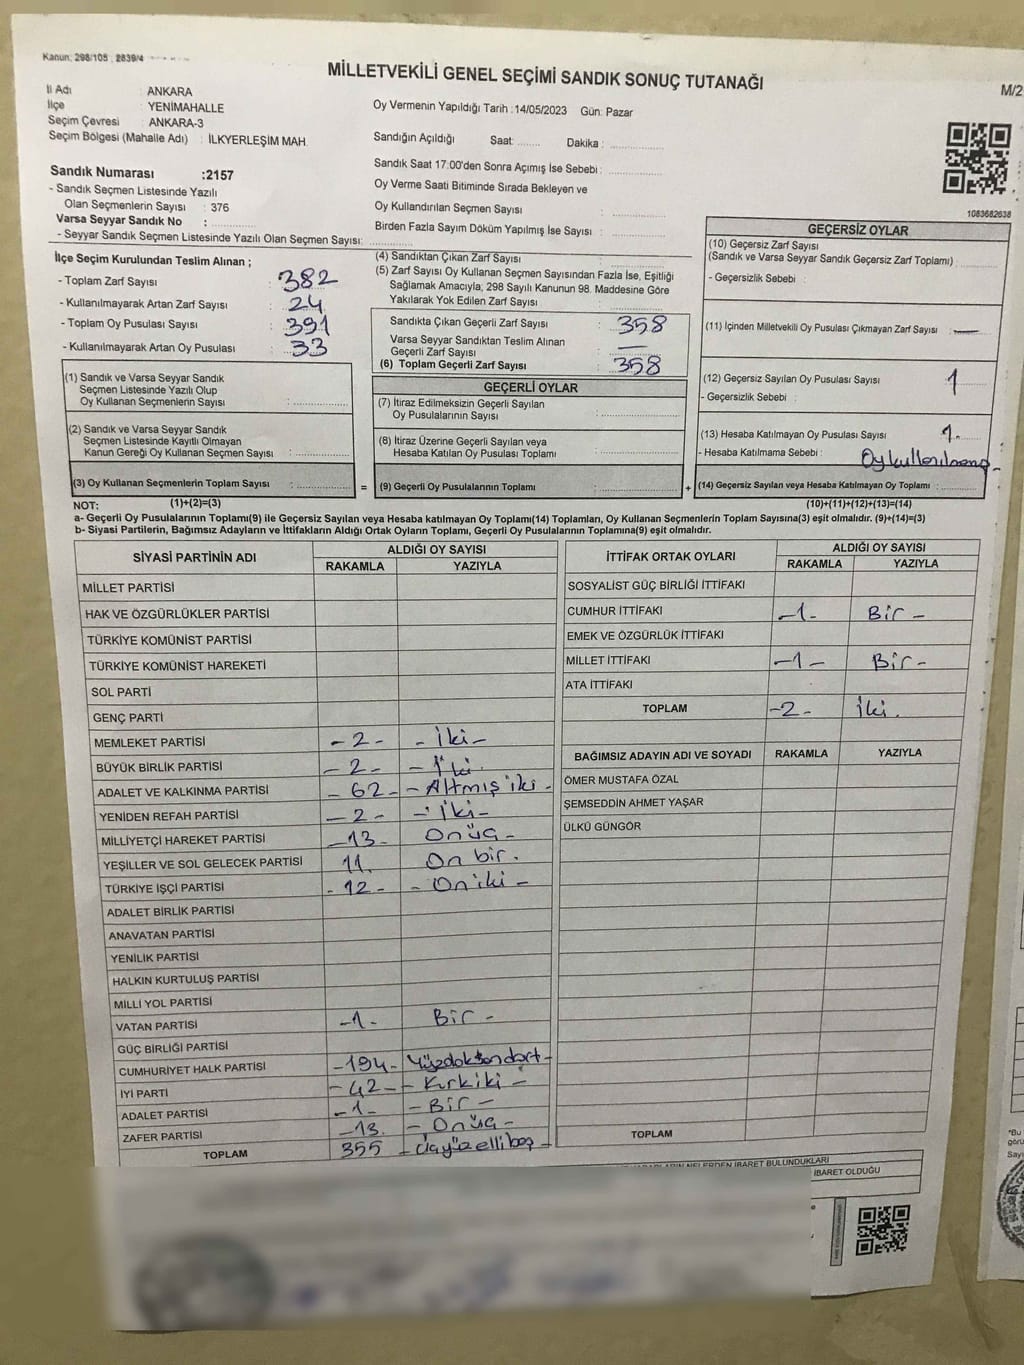 Kanun: 298/105 ; 2839/4
MİLLETVEKİLİ GENEL SEÇİMİ SANDIK SONUÇ TUTANAĞI
M/2
İl Adı : ANKARA
İlçe : YENİMAHALLE
Seçim Çevresi : ANKARA-3
Seçim Bölgesi (Mahalle Adı) : İLKYERLEŞİM MAH.
Oy Vermenin Yapıldığı Tarih :14/05/2023 Gün: Pazar
Sandığın Açıldığı Saat: ........ Dakika : ..............
Sandık Saat 17:00'den Sonra Açımış İse Sebebi : ..............
Oy Verme Saati Bitiminde Sırada Bekleyen ve
Oy Kullandırılan Seçmen Sayısı : ..............
Birden Fazla Sayım Döküm Yapılmış İse Sayısı : ..............
1083682638
Sandık Numarası :2157
- Sandık Seçmen Listesinde Yazılı
Olan Seçmenlerin Sayısı : 376
Varsa Seyyar Sandık No : ..............
- Seyyar Sandık Seçmen Listesinde Yazılı Olan Seçmen Sayısı: ..............
İlçe Seçim Kurulundan Teslim Alınan ;
- Toplam Zarf Sayısı : 382
- Kullanılmayarak Artan Zarf Sayısı : 24
- Toplam Oy Pusulası Sayısı : 391
- Kullanılmayarak Artan Oy Pusulası : 33
(1) Sandık ve Varsa Seyyar Sandık
Seçmen Listesinde Yazılı Olup
Oy Kullanan Seçmenlerin Sayısı : ..............
(2) Sandık ve Varsa Seyyar Sandık
Seçmen Listesinde Kayıtlı Olmayan
Kanun Gereği Oy Kullanan Seçmen Sayısı : ..............
(3) Oy Kullanan Seçmenlerin Toplam Sayısı : ..............
(4) Sandıktan Çıkan Zarf Sayısı : ..............
(5) Zarf Sayısı Oy Kullanan Seçmen Sayısından Fazla İse, Eşitliği
Sağlamak Amacıyla; 298 Sayılı Kanunun 98. Maddesine Göre
Yakılarak Yok Edilen Zarf Sayısı : ..............
Sandıkta Çıkan Geçerli Zarf Sayısı : 358
Varsa Seyyar Sandıktan Teslim Alınan
Geçerli Zarf Sayısı : —
(6) Toplam Geçerli Zarf Sayısı : 358
GEÇERLİ OYLAR
(7) İtiraz Edilmeksizin Geçerli Sayılan
Oy Pusulalarının Sayısı : ..............
(8) İtiraz Üzerine Geçerli Sayılan veya
Hesaba Katılan Oy Pusulası Toplamı : ..............
= (9) Geçerli Oy Pusulalarının Toplamı : ..............
GEÇERSİZ OYLAR
(10) Geçersiz Zarf Sayısı
(Sandık ve Varsa Seyyar Sandık Geçersiz Zarf Toplamı) : ..............
- Geçersizlik Sebebi :
(11) İçinden Milletvekili Oy Pusulası Çıkmayan Zarf Sayısı : —
(12) Geçersiz Sayılan Oy Pusulası Sayısı : 1
- Geçersizlik Sebebi :
(13) Hesaba Katılmayan Oy Pusulası Sayısı : 1.
- Hesaba Katılmama Sebebi :
+ (14) Geçersiz Sayılan veya Hesaba Katılmayan Oy Toplamı : ..............
NOT: (1)+(2)=(3) (10)+(11)+(12)+(13)=(14)
a- Geçerli Oy Pusulalarının Toplamı(9) ile Geçersiz Sayılan veya Hesaba katılmayan Oy Toplamı(14) Toplamları, Oy Kullanan Seçmenlerin Toplam Sayısına(3) eşit olmalıdır. (9)+(14)=(3)
b- Siyasi Partilerin, Bağımsız Adayların ve İttifakların Aldığı Ortak Oyların Toplamı, Geçerli Oy Pusulalarının Toplamına(9) eşit olmalıdır.
SİYASİ PARTİNİN ADI ALDIĞI OY SAYISI
RAKAMLA YAZIYLA
MİLLET PARTİSİ
HAK VE ÖZGÜRLÜKLER PARTİSİ
TÜRKİYE KOMÜNİST PARTİSİ
TÜRKİYE KOMÜNİST HAREKETİ
SOL PARTİ
GENÇ PARTİ
MEMLEKET PARTİSİ -2- -iki-
BÜYÜK BİRLİK PARTİSİ -2- -iki.
ADALET VE KALKINMA PARTİSİ -62- -Altmış iki-
YENİDEN REFAH PARTİSİ -2- -iki-
MİLLİYETÇİ HAREKET PARTİSİ -13- Onüç-
YEŞİLLER VE SOL GELECEK PARTİSİ 11. On bir.
TÜRKİYE İŞÇİ PARTİSİ -12- -Oniki-
ADALET BİRLİK PARTİSİ
ANAVATAN PARTİSİ
YENİLİK PARTİSİ
HALKIN KURTULUŞ PARTİSİ
MİLLİ YOL PARTİSİ
VATAN PARTİSİ -1- Bir-
GÜÇ BİRLİĞİ PARTİSİ
CUMHURİYET HALK PARTİSİ -194- Yüzdoksandört-
İYİ PARTİ -42- -Kırkiki-
ADALET PARTİSİ -1- -Bir-
ZAFER PARTİSİ -13. -Onüç-
TOPLAM 355 -Üçyüzellibeş-
İTTİFAK ORTAK OYLARI ALDIĞI OY SAYISI
RAKAMLA YAZIYLA
SOSYALİST GÜÇ BİRLİĞİ İTTİFAKI
CUMHUR İTTİFAKI -1- Bir-
EMEK VE ÖZGÜRLÜK İTTİFAKI
MİLLET İTTİFAKI -1- Bir-
ATA İTTİFAKI
TOPLAM -2- iki.
BAĞIMSIZ ADAYIN ADI VE SOYADI RAKAMLA YAZIYLA
ÖMER MUSTAFA ÖZAL
ŞEMSEDDİN AHMET YAŞAR
ÜLKÜ GÜNGÖR
TOPLAM
NELERDEN İBARET BULUNDUKLARI
İBARET OLDUĞU
"Bu
görü
Sayı